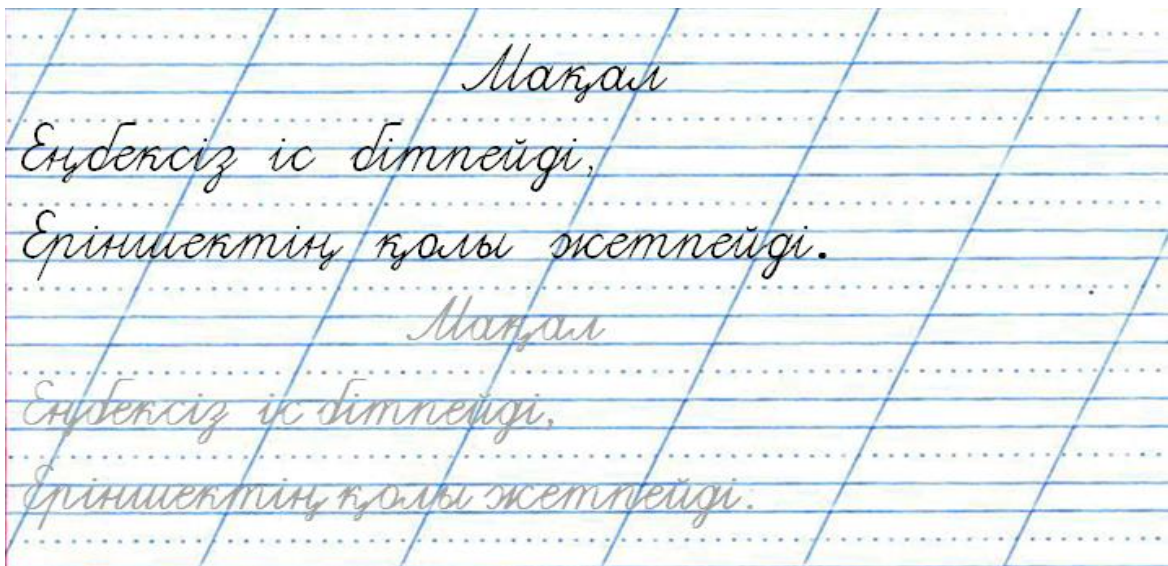 Мақал
Еңбексіз іс бітпейді,
Еріншектің қолы жетпейді.
Мақал
Еңбексіз іс бітпейді,
Еріншектің қолы жетпейді.